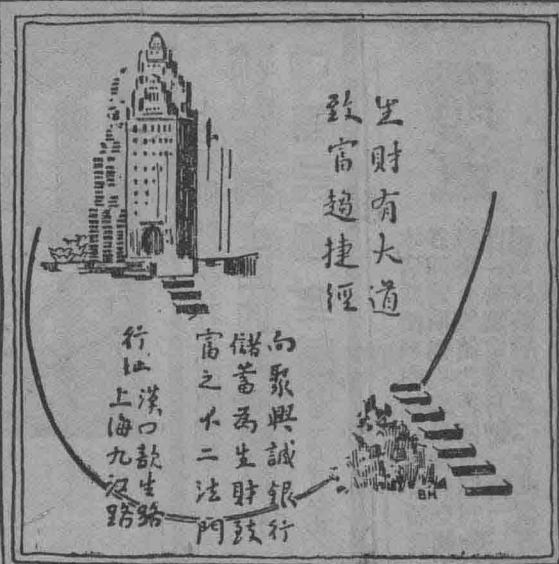 生財有大道
致富趨捷徑
向聚興誠銀行
儲蓄為生財致
富之不二法門
行址
漢口歆生路
上海九江路
BH